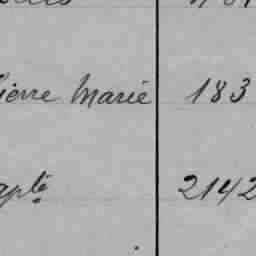 ierre Marie 183
apte 2142